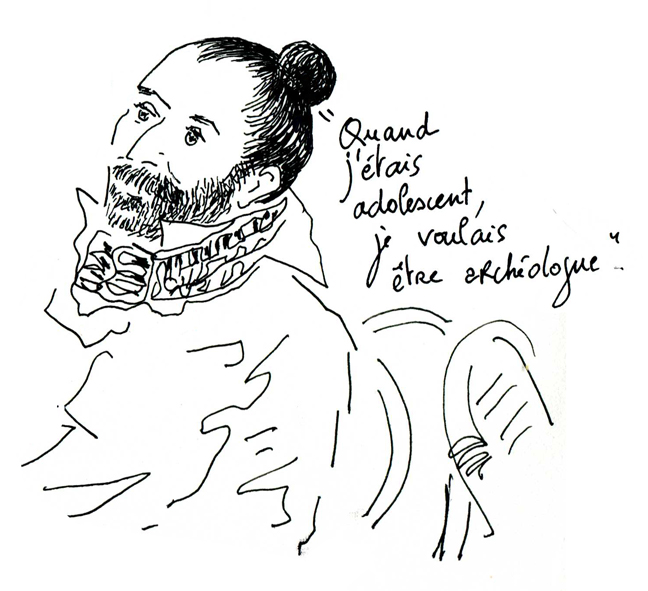 "Quand
j'étais
adolescent,
je voulais
être archéologue"..